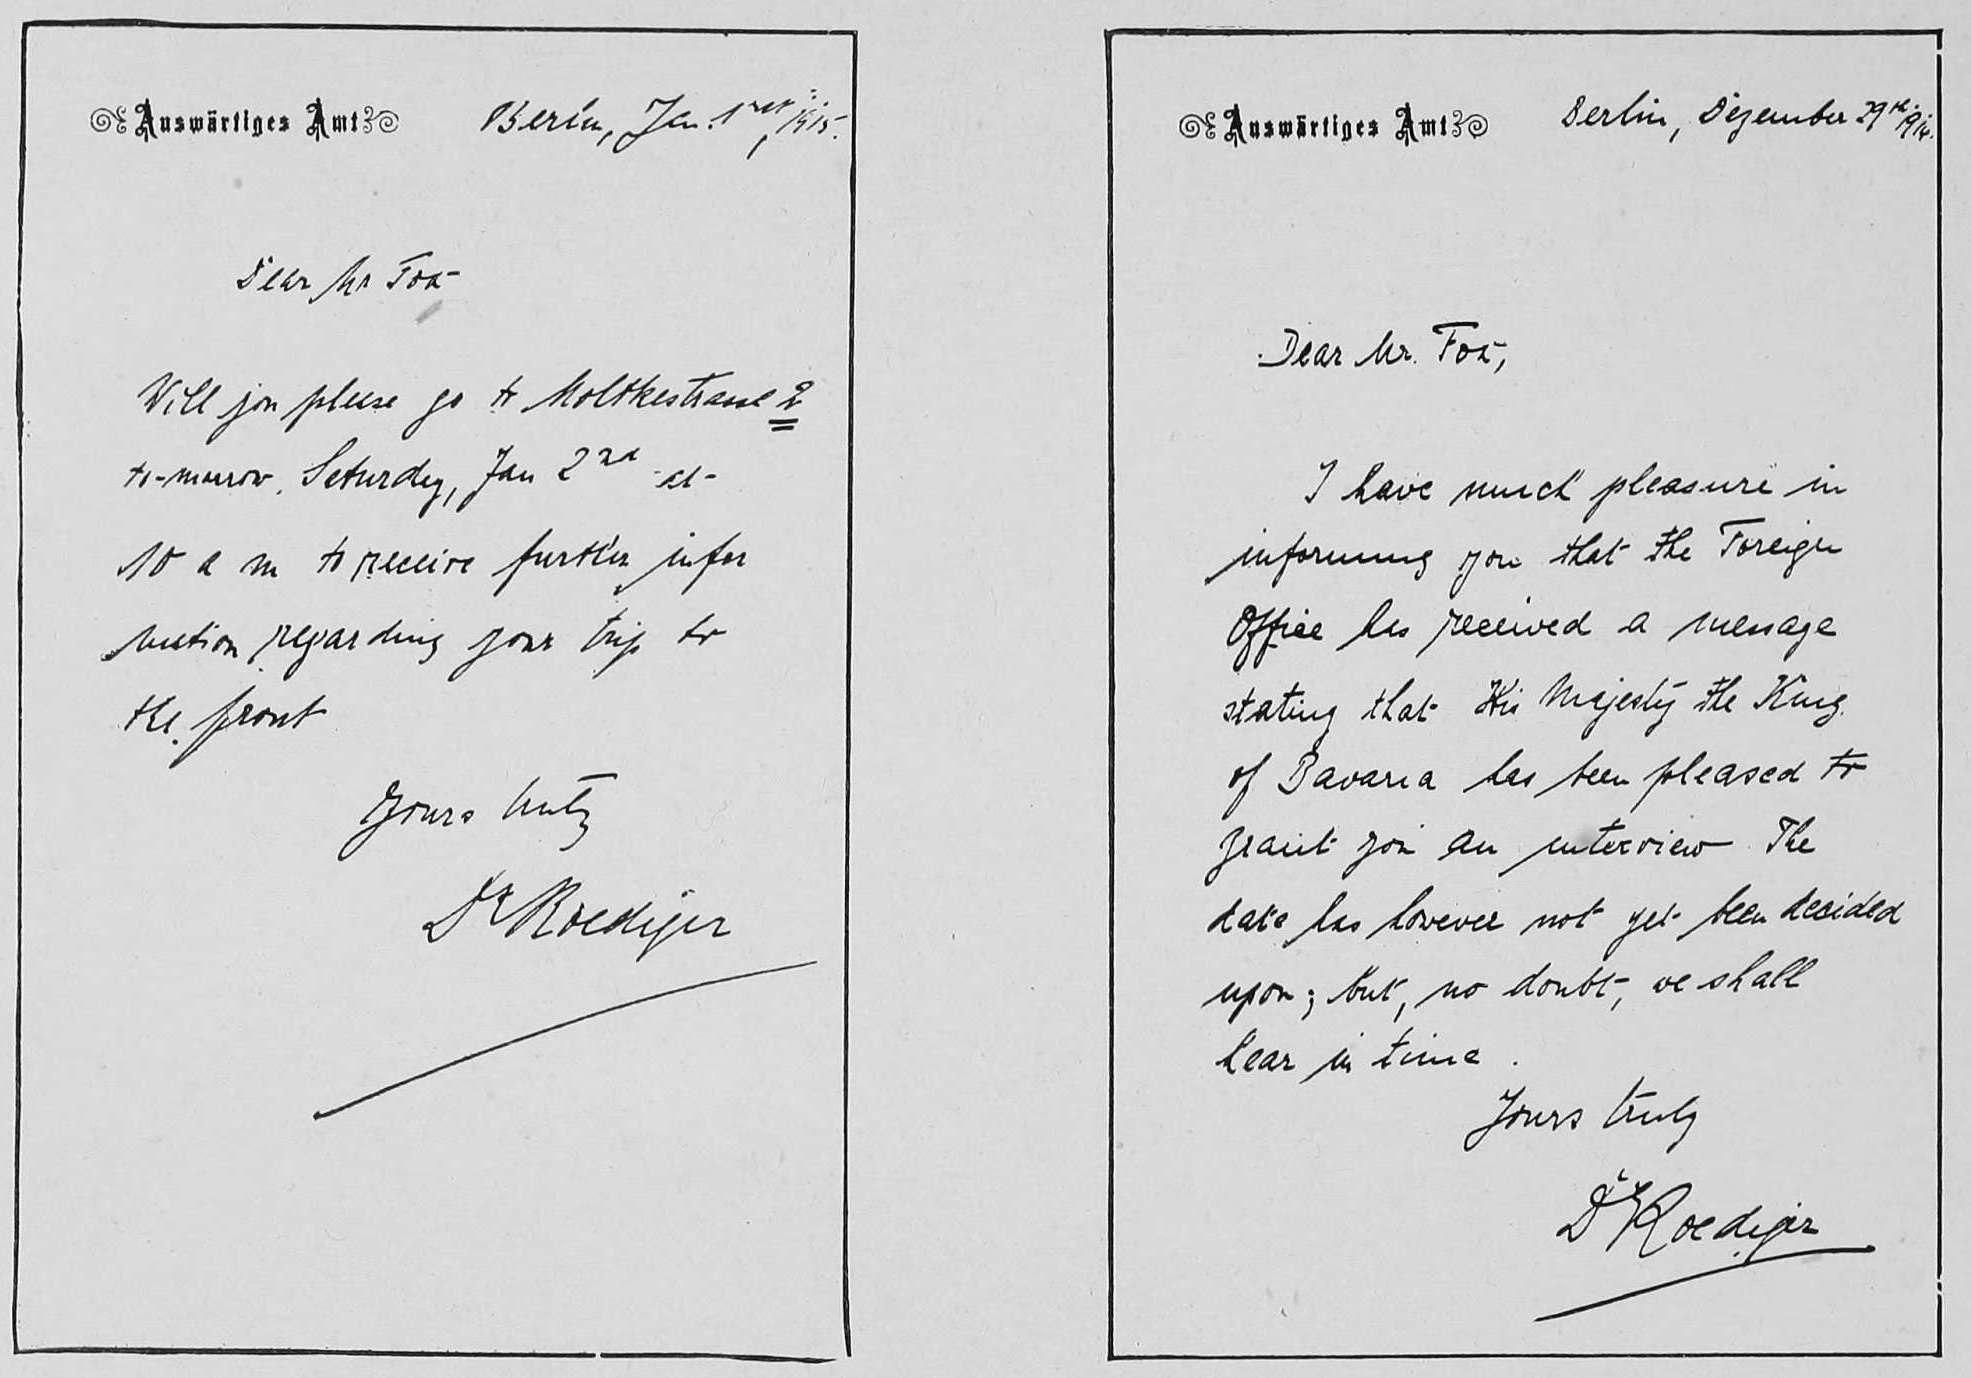 Auswärtiges Amt Berlin, Jan. 1st, 1915.
Dear Mr Fox
Will you please go to Moltkestrasse 2
to-morrow, Saturday, Jan 2nd at
10 a m to receive further infor
mation regarding your trip to
the front
Yours truly
Dr Roediger
Auswärtiges Amt Berlin, Dezember 29th 1914.
Dear Mr. Fox,
I have much pleasure in
informing you that the Foreign
Office has received a message
stating that His Majesty the King
of Bavaria has been pleased to
grant you an interview The
date has however not yet been decided
upon; but, no doubt, we shall
hear in time.
Yours truly
Dr Roediger